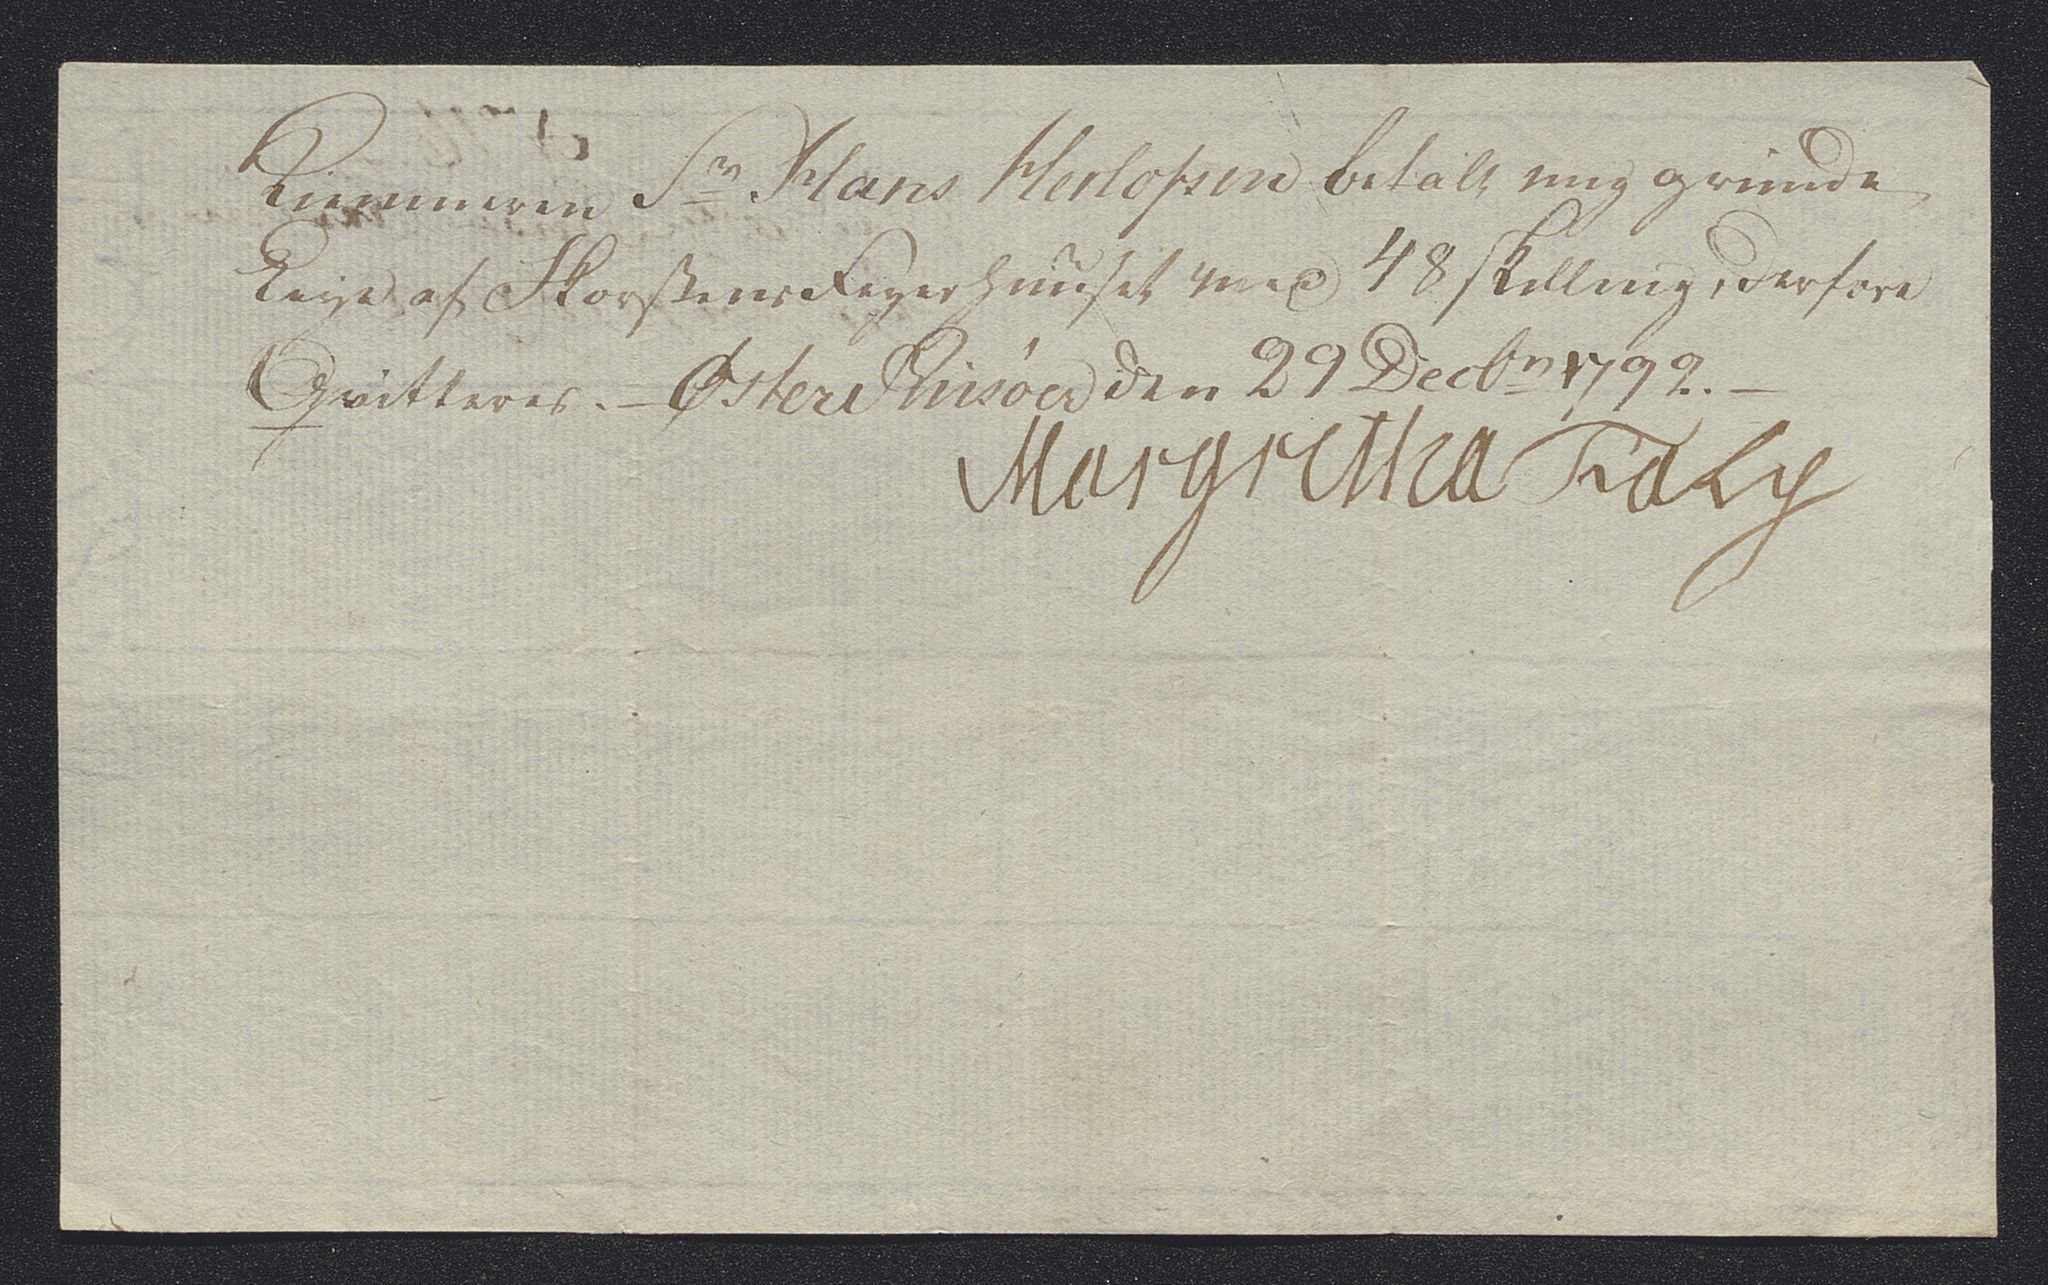 Kiemneren Sr Hans Herlofsen betalt mig grunde
Leye af Skorstens Feyer Huuset med 48 skilling, derfore
Qvitteres. – Øster Riisøer den 29 Decbr 1792. –
Margretha Faly